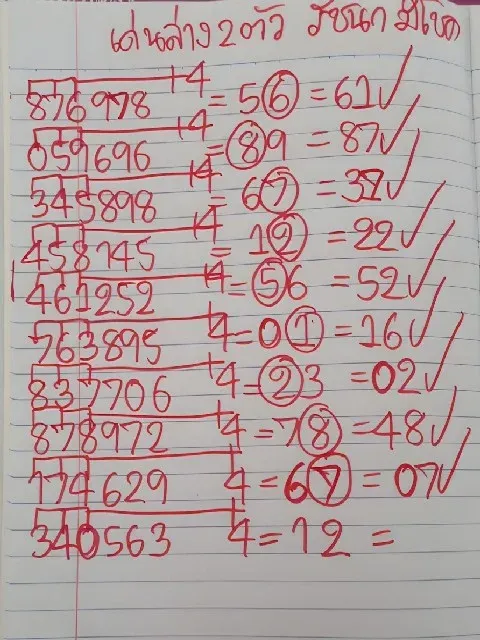 เด่นล่าง2ตัว รัชนก มีโชค
876978 +4 = 56 = 61✓
059696 +4 = 89 = 87✓
345898 +4 = 67 = 37✓
458745 +4 = 12 = 22✓
461252 +4 = 56 = 52✓
763895 +4 = 01 = 16✓
837706 +4 = 23 = 02✓
878972 +4 = 78 = 48✓
174629 +4 = 67 = 07✓
340563 +4 = 12 =